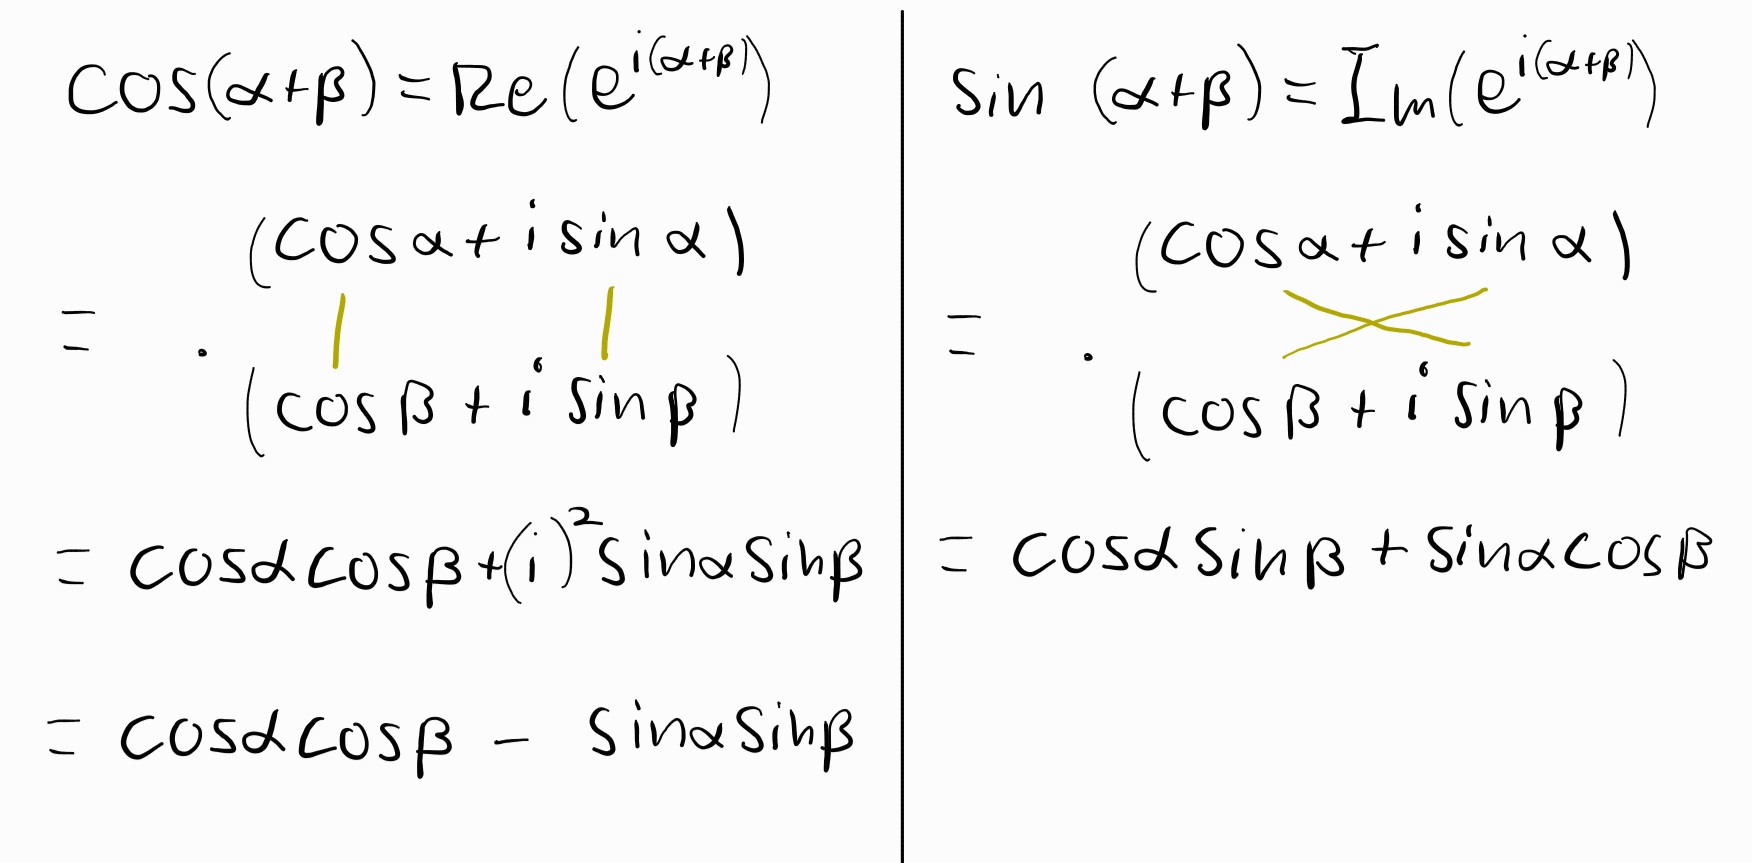 cos(α+β) = Re(e^{i(α+β)})
(cosα + i sin α)
= ·
(cos β + i sin β)
= cosα cosβ + (i)² sinα sinβ
= cosα cosβ − sinα sinβ
sin (α+β) = Im(e^{i(α+β)})
(cosα + i sin α)
= ·
(cos β + i sin β)
= cosα sin β + sinα cos β